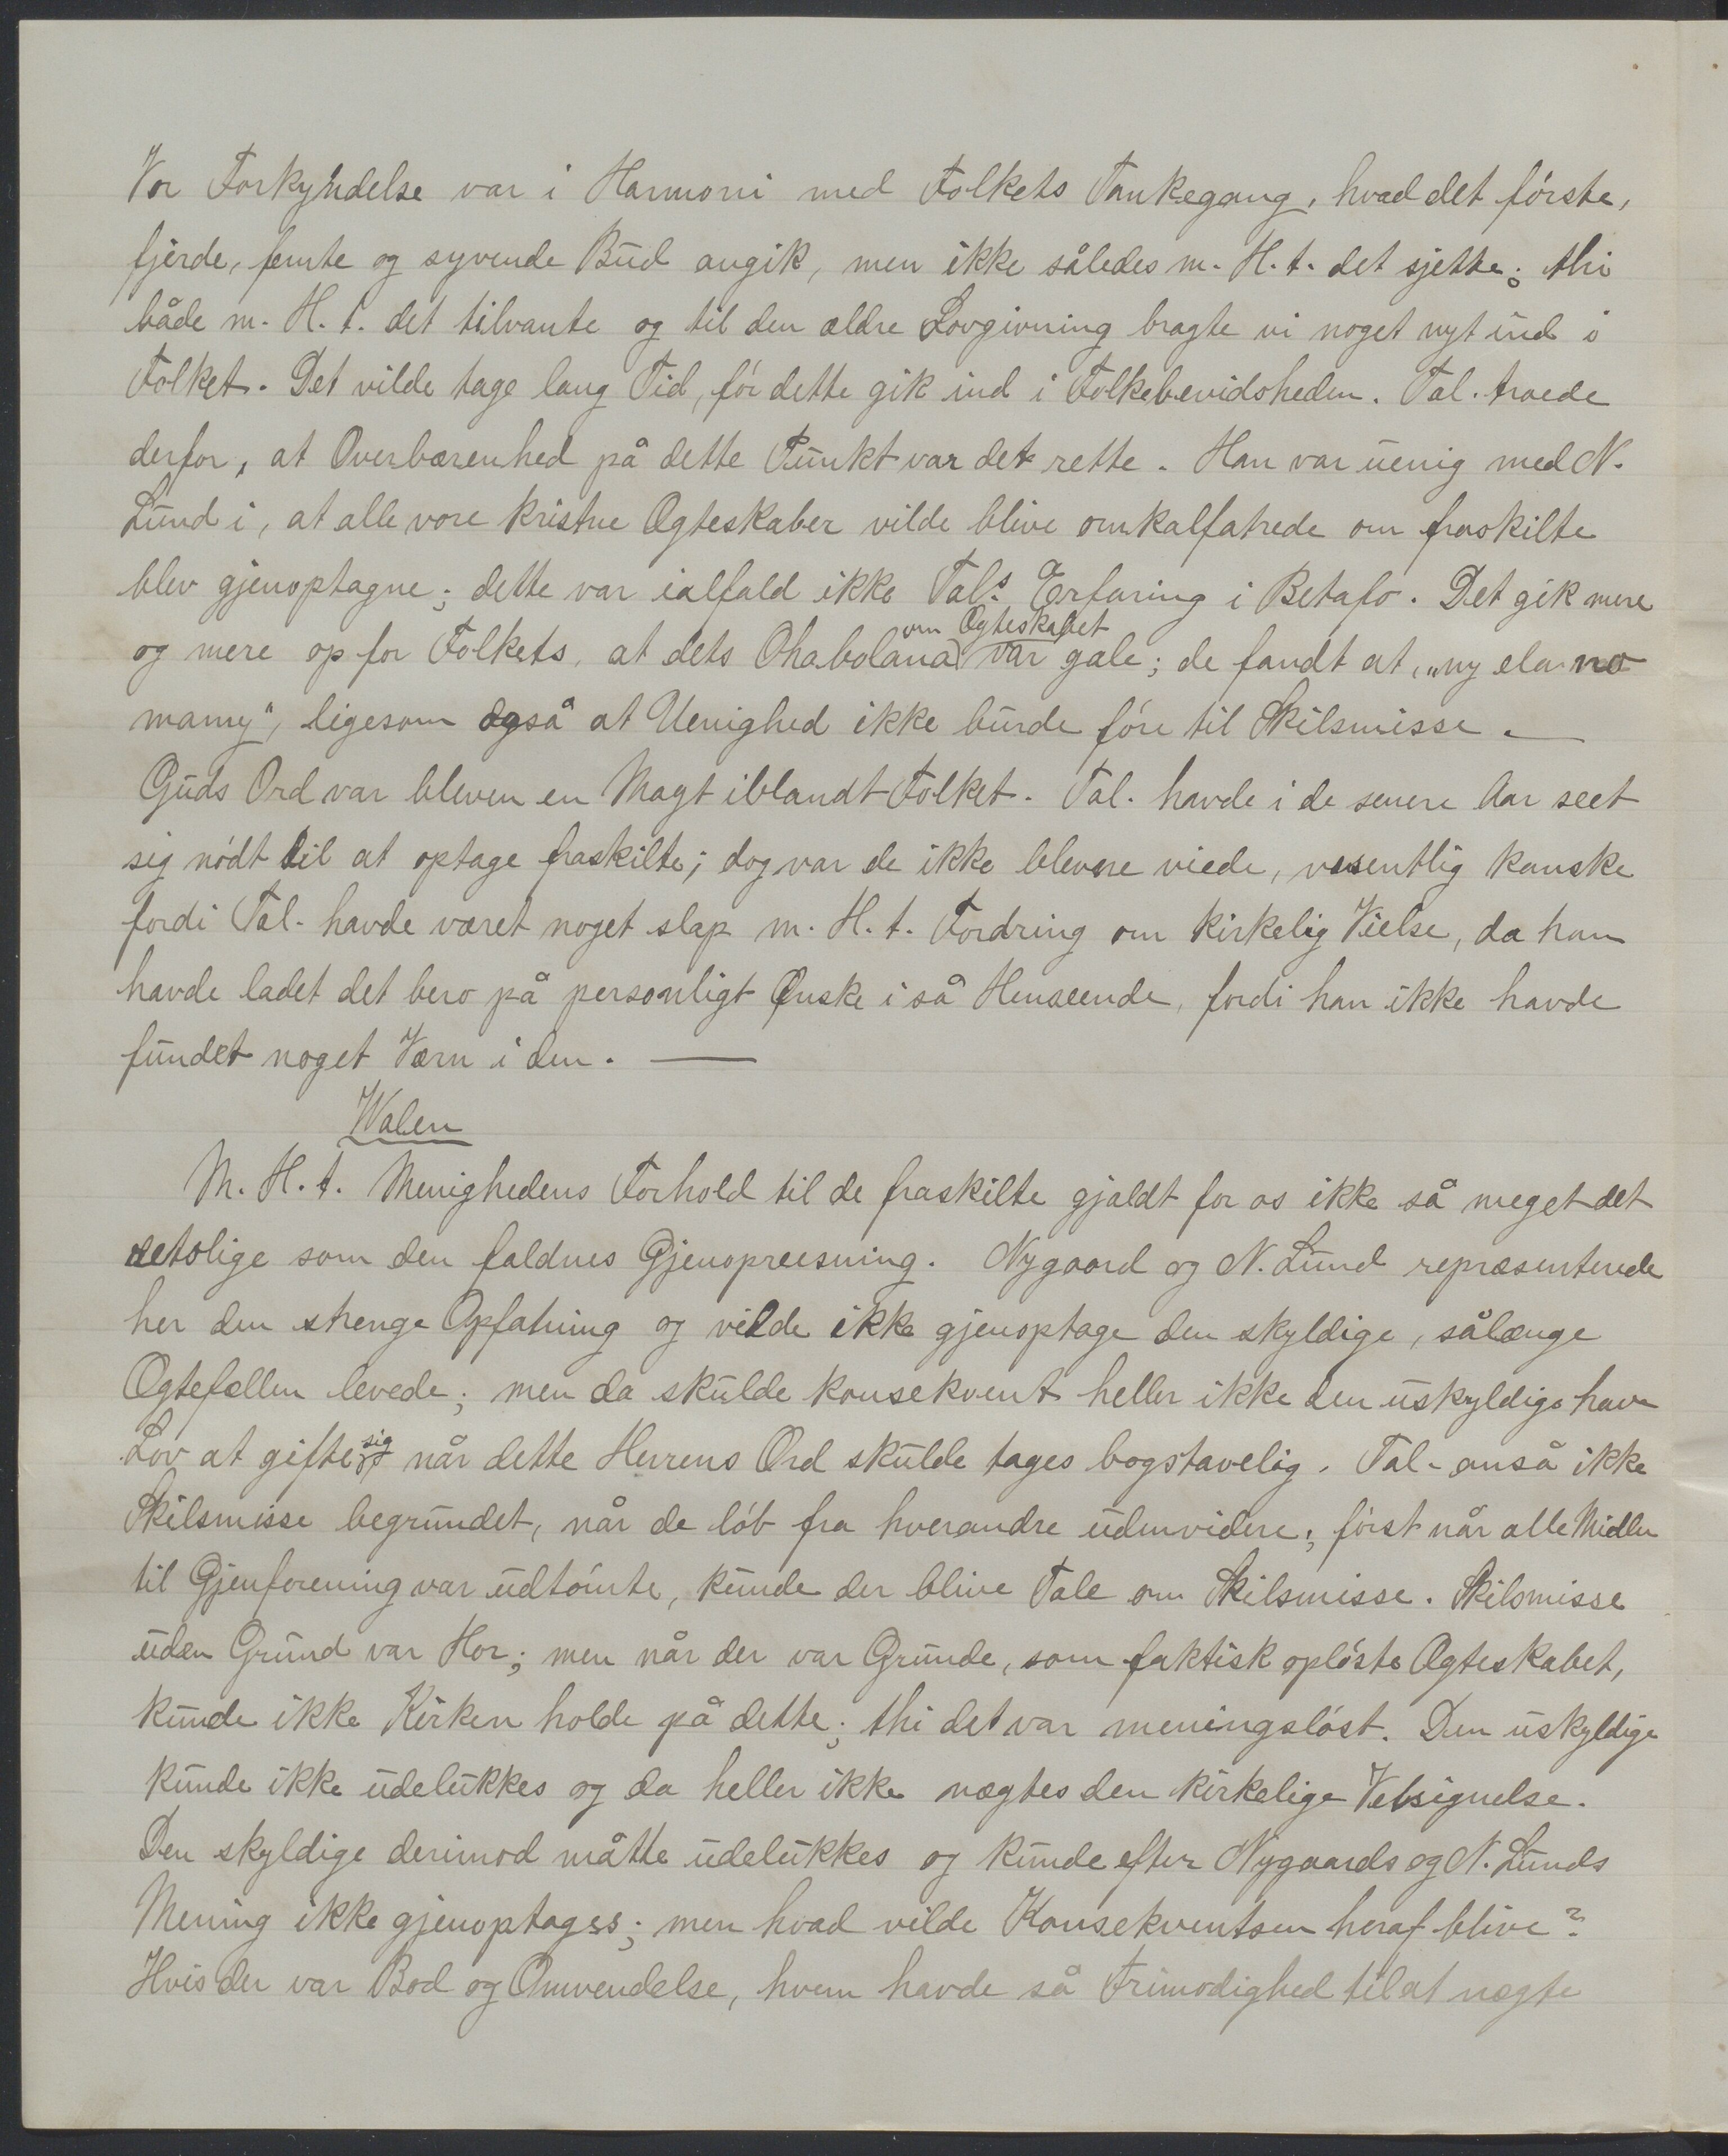 Vor Forkyndelse var i Harmoni med Folkets Tankegang, hvad det første,
fjerde, femte og syvende Bud angik, men ikke således m. H. t. det sjette; thi
både m. H. t. det tilvante og til den ældre Lovgivning bragte vi noget nyt ind i
Folket. Det vilde tage lang Tid, før dette gik ind i Folkebevidsheden. Tal. troede
derfor, at Overbærenhed på dette Punkt var det rette. Han var uenig med N.
Lund i, at alle vore kristne Ægteskaber vilde blive omkalfatrede om fraskilte
blev gjenoptagne; dette var ialfald ikke Tals Erfaring i Betafo. Det gik mere
og mere op for Folkets, at dets Ohabolana om Ægteskabet var gale; de fandt at, "ny ela no
mamy", ligesom også at Uenighed ikke burde føre til Skilsmisse. —
Guds Ord var bleven en Magt iblandt Folket. Tal. havde i de senere Aar seet
sig nødt til at optage fraskilte; dog var de ikke blevne viede, væsentlig kanske
fordi Tal. havde været noget slap m. H. t. Fordring om kirkelig Vielse, da han
havde ladet det bero på personligt Ønske i så Henseende, fordi han ikke havde
fundet noget Værn i den. —
Walen
M. H. t. Menighedens Forhold til de fraskilte gjaldt for os ikke så meget det
retslige som den faldnes Gjenopreisning. Nygaard og N. Lund repræsenterede
her den strenge Opfatning og vilde ikke gjenoptage den skyldige, sålænge
Ægtefællen levede; men da skulde konsekvent heller ikke den uskyldige have
Lov at gifte sig når dette Herrens Ord skulde tages bogstavelig. Tal. anså ikke
Skilsmisse begrundet, når de løb fra hverandre udenvidere; først når alle Midler
til Gjenforening var udtømte, kunde der blive Tale om Skilsmisse. Skilsmisse
uden Grund var Hor; men når der var Grunde, som faktisk opløste Ægteskabet,
kunde ikke Kirken holde på dette; thi det var meningsløst. Den uskyldige
kunde ikke udelukkes og da heller ikke nægtes den kirkelige Velsignelse.
Den skyldige derimod måtte udelukkes og kunde efter Nygaards og N. Lunds
Mening ikke gjenoptages; men hvad vilde Konsekventsen heraf blive?
Hvis der var Bod og Omvendelse, hvem havde så Frimodighed til at nægte